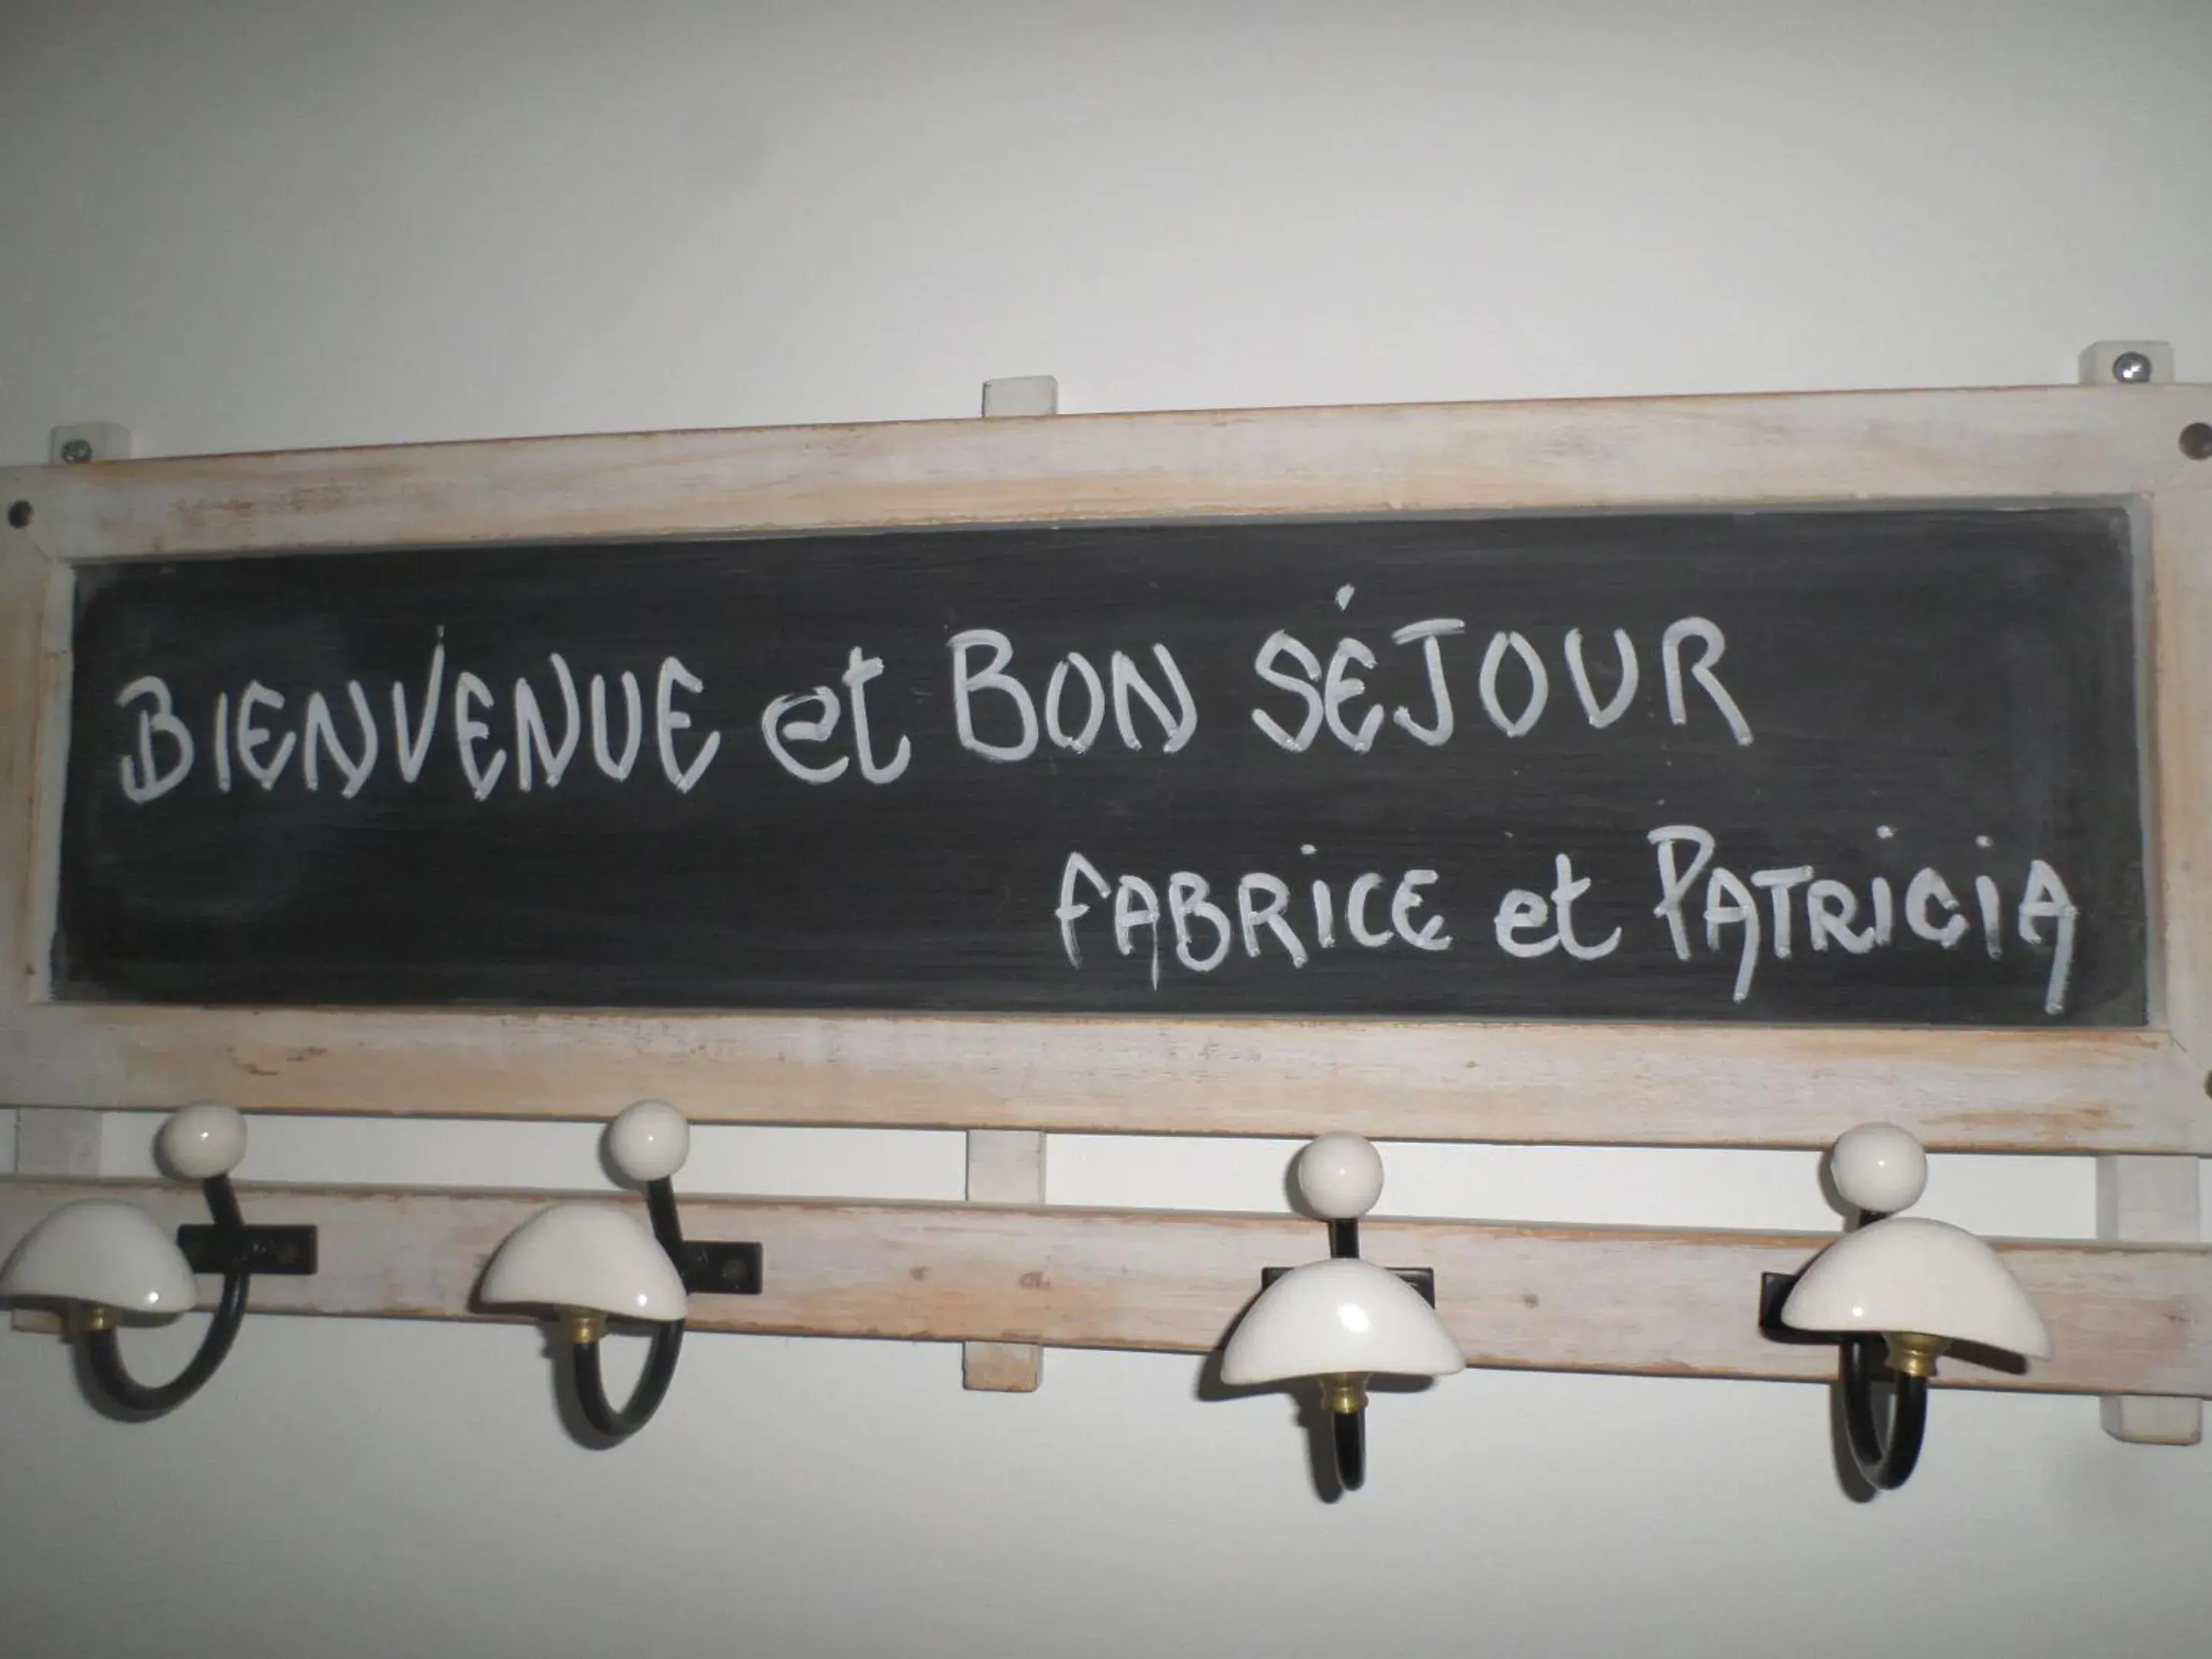 BIENVENUE et BON SÉJOUR
FABRICE et PATRICIA